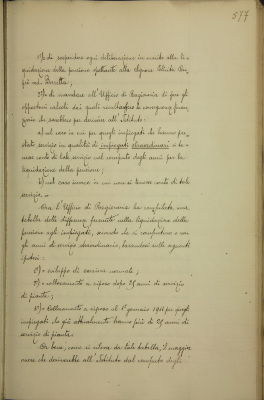 577
1°) di sospendere ogni deliberazione in merito alla li-
quidazione della pensione spettante alla Signora
ved. Beretta;
2°) di mandare all'Ufficio di Ragioneria di fare gli
opportuni calcoli dai quali risultasse la conseguenza finan-
ziaria che sarebbe per derivare all'Istituto:
a) nel caso in cui per quegli impiegati che hanno pre-
stato servizio in qualità di impiegati straordinari si te-
nesse conto di tale servizio nel computo degli anni per la
liquidazione della pensione;
b) nel caso invece in cui non si tenesse conto di tale
servizio.-
Ora l'Ufficio di Ragioneria ha compilata una
tabella delle differenze risultanti nella liquidazione delle
pensioni agli impiegati, secondo che si computino o no
gli anni di servizio straordinario, basandosi sulle seguenti
ipotesi:
1°)= sviluppo di carriera normale;
2°)= collocamento a riposo dopo 25 anni di servizio
di pianta;
3°)= Collocamento a riposo al 1° gennaio 1911 per quegli
impiegati che già attualmente hanno più di 25 anni di
servizio di pianta.
Or bene, come si rileva da tale tabella, il maggior
onere che deriverebbe all'Istituto dal computo degli